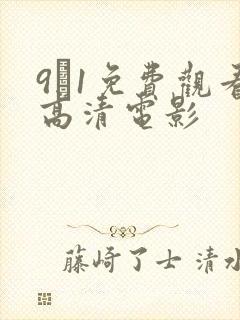 9�1免費觀看
高清電影
藤崎了士 清水